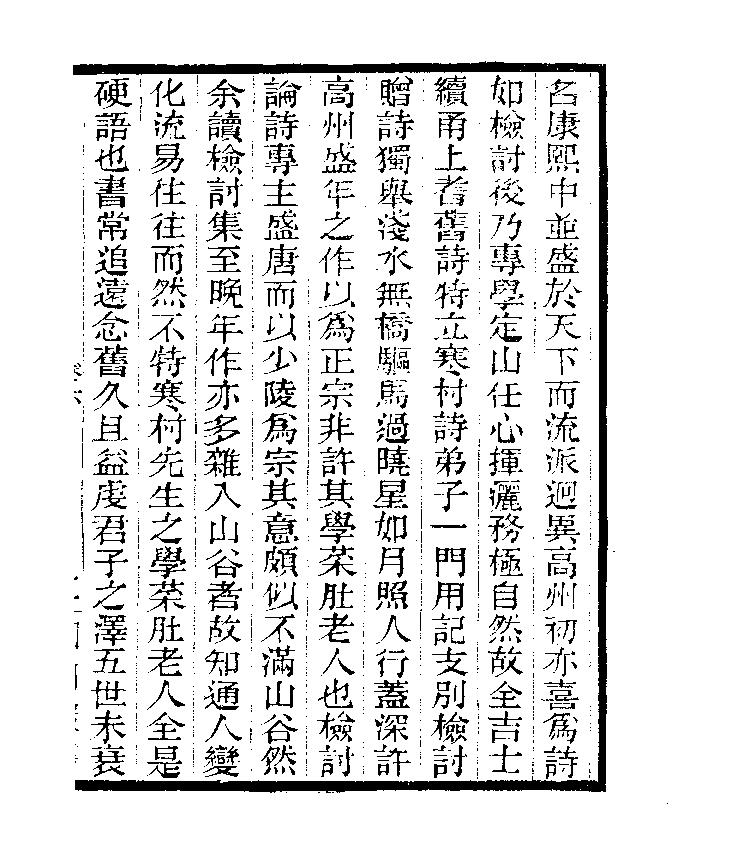 名康熙中並盛於天下而流派迥異高州初亦喜爲詩
如檢討後乃專學定山任心揮灑務極自然故全吉士
續甬上耆舊詩特立寒村詩弟子一門用記支別檢討
贈詩獨舉淺水無橋驅馬過曉星如月照人行蓋深許
高州盛年之作以爲正宗非許其學菜肚老人也檢討
論詩專主盛唐而以少陵爲宗其意頗似不滿山谷然
余讀檢討集至晚年作亦多雜入山谷者故知通人變
化流易往往而然不特寒村先生之學菜肚老人全是
硬語也書常追遠念舊久且益虔君子之澤五世未衰